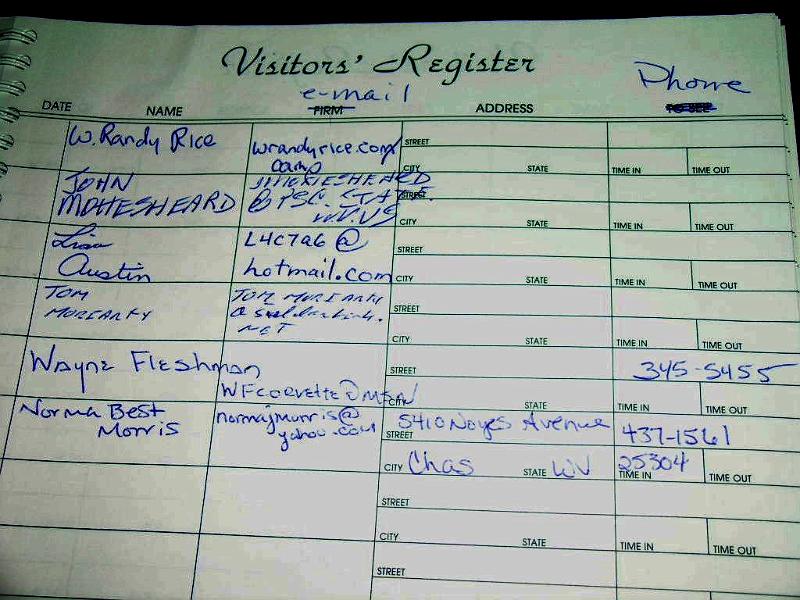 Visitors' Register
e-mail Phone
DATE NAME FIRM ADDRESS TO SEE
W. Randy Rice wrandyrice.com/ STREET
camp CITY STATE TIME IN TIME OUT
JOHN STREET
CITY STATE TIME IN TIME OUT
Lisa L4C7a6@ STREET
Austin hotmail.com CITY STATE TIME IN TIME OUT
TOM TOM MORIARTY STREET
MORIARTY
NET CITY STATE TIME IN TIME OUT
Wayne Fleshman STREET 345-5455
WFcorvette@MSN CITY STATE TIME IN TIME OUT
Norma Best normajmorris@ STREET 5410 Noyes Avenue 437-1561
Morris yahoo.com
CITY Chas STATE WV 25304 TIME IN TIME OUT
STREET
CITY STATE TIME IN TIME OUT
STREET